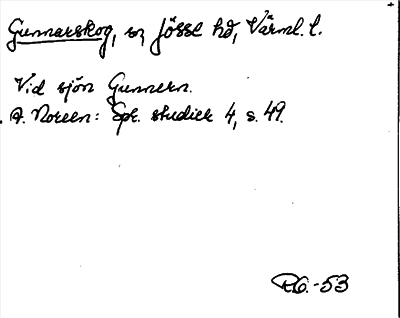 Gunnarskog, sn, Jösse hd, Värml. l.
Vid sjön Gunnern.
A. Noreen: Spr. studier 4, s. 49.
R.G.-53